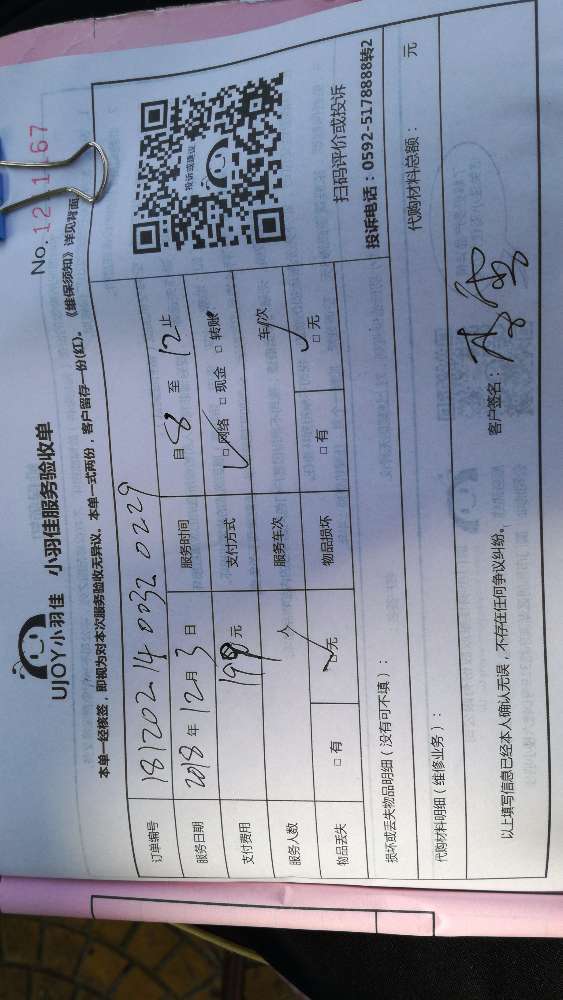 UJOY小羽佳 小羽佳服务验收单
No.
本单一经核签,即视为对本次服务验收无异议。本单一式两份,客户留存一份(红)。《维保须知》详见背面
订单编号 18120214 0032 0229
服务日期 2018 年 12 月 3 日 服务时间 自 8 至 12 止
支付费用 199 元 支付方式 □网络 □现金 □转账
服务人数 人 服务车次 车/次
物品丢失 □有 □无 物品损坏 □有 □无
投诉或建议
扫码评价或投诉
投诉电话:0592-5178888转2
损坏或丢失物品明细(没有可不填):
代购材料明细(维修业务): 代购材料总额: 元
以上填写信息已经本人确认无误,不存在任何争议纠纷。 客户签名: